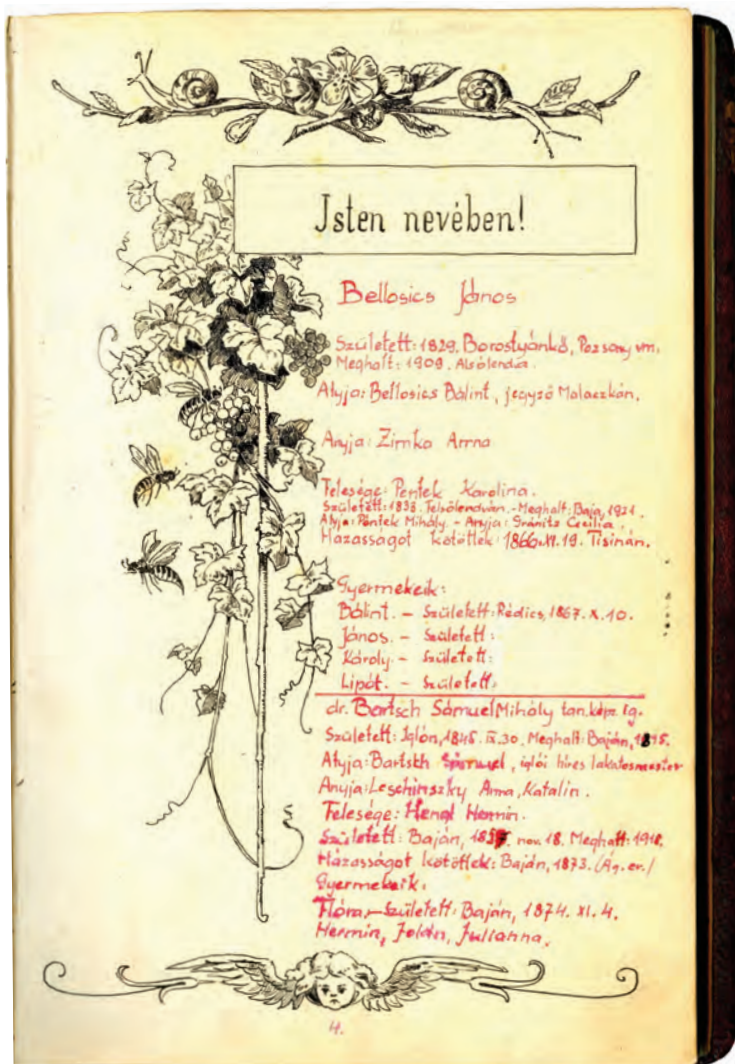 Isten nevében!
Bellosics János
Született: 1829. Borostyánkő, Pozsony vm.
Meghalt: 1909. Alsólendva.
Atyja: Bellosics Bálint, jegyző Malaczkán.
Anyja: Zirnka Anna
Felesége: Pentek Karolina.
Született: 1838. Felsőlendván. - Meghalt: Baja, 1921.
Atyja: Péntek Mihály. - Anyja: Gránitz Cecilia.
Házasságot kötöttek: 1866. XI. 19. Tisinán.
Gyermekeik:
Bálint. - Született: Rédics, 1867. X. 10.
János. - Született:
Károly. - Született:
Lipót. - Született:
dr. Bartsch Sámuel Mihály tan. képz. ig.
Született: Iglón, 1845. IX. 30. Meghalt: Baján,
Atyja: Bartsch Sámuel, iglói híres lakatosmester
Anyja: Leschinszky Anna, Katalin.
Felesége: Hengl Hermin.
Született: Baján, nov. 18. Meghalt: 1918.
Házasságot kötöttek: Baján, 1873. (Ág. ev.)
Gyermekeik:
Flóra. - Született: Baján, 1874. XI. 4.
Hermin, Jolán, Julianna.
4.